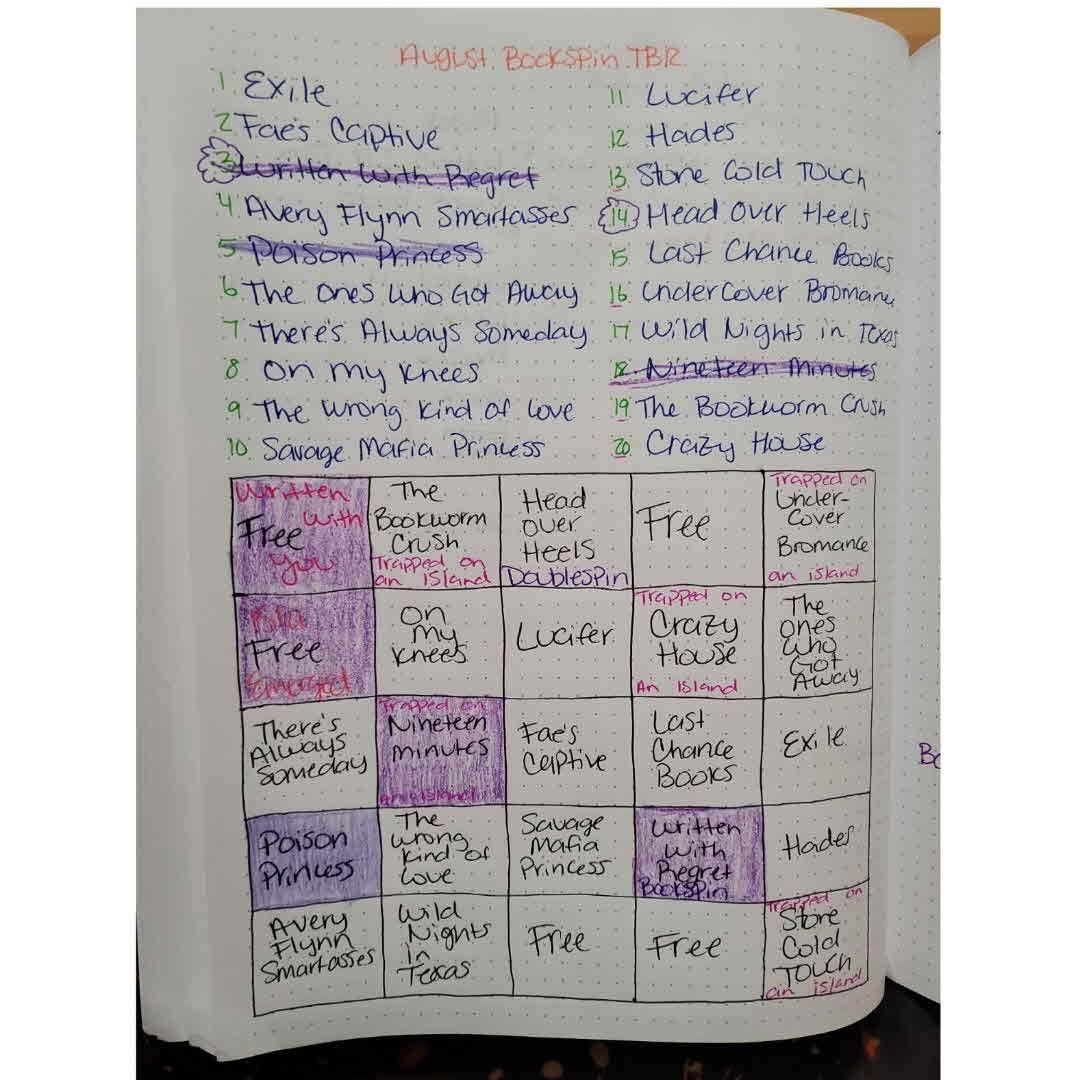 August BookSpin TBR
1 Exile
2 Fae's Captive
3 Written With Regret
4 Avery Flynn Smartasses
5 Poison Princess
6 The Ones Who Got Away
7 There's Always Someday
8. On My Knees
9. The Wrong Kind of Love
10. Savage Mafia Princess
11 Lucifer
12 Hades
13 Stone Cold Touch
14 Head Over Heels
15 Last Chance Books
16 Undercover Bromance
17 Wild Nights in Texas
18. Nineteen Minutes
19 The Bookworm Crush
20 Crazy House
Written
Free With
You
The
Bookworm
Crush
Trapped on
an island
Head
Over
Heels
DoubleSpin
Free
Trapped on
Under-
Cover
Bromance
an island
Free
Emerged
On
My
Knees
Lucifer
Trapped on
Crazy
House
An Island
The
Ones
Who
Got
Away
There's
Always
Someday
Trapped on
Nineteen
Minutes
an island
Fae's
Captive
Last
Chance
Books
Exile
Poison
Princess
The
Wrong
Kind of
Love
Savage
Mafia
Princess
Written
With
Regret
BookSpin
Hades
Avery
Flynn
Smartasses
Wild
Nights
In
Texas
Free
Free
Trapped on
Stone
Cold
Touch
an island